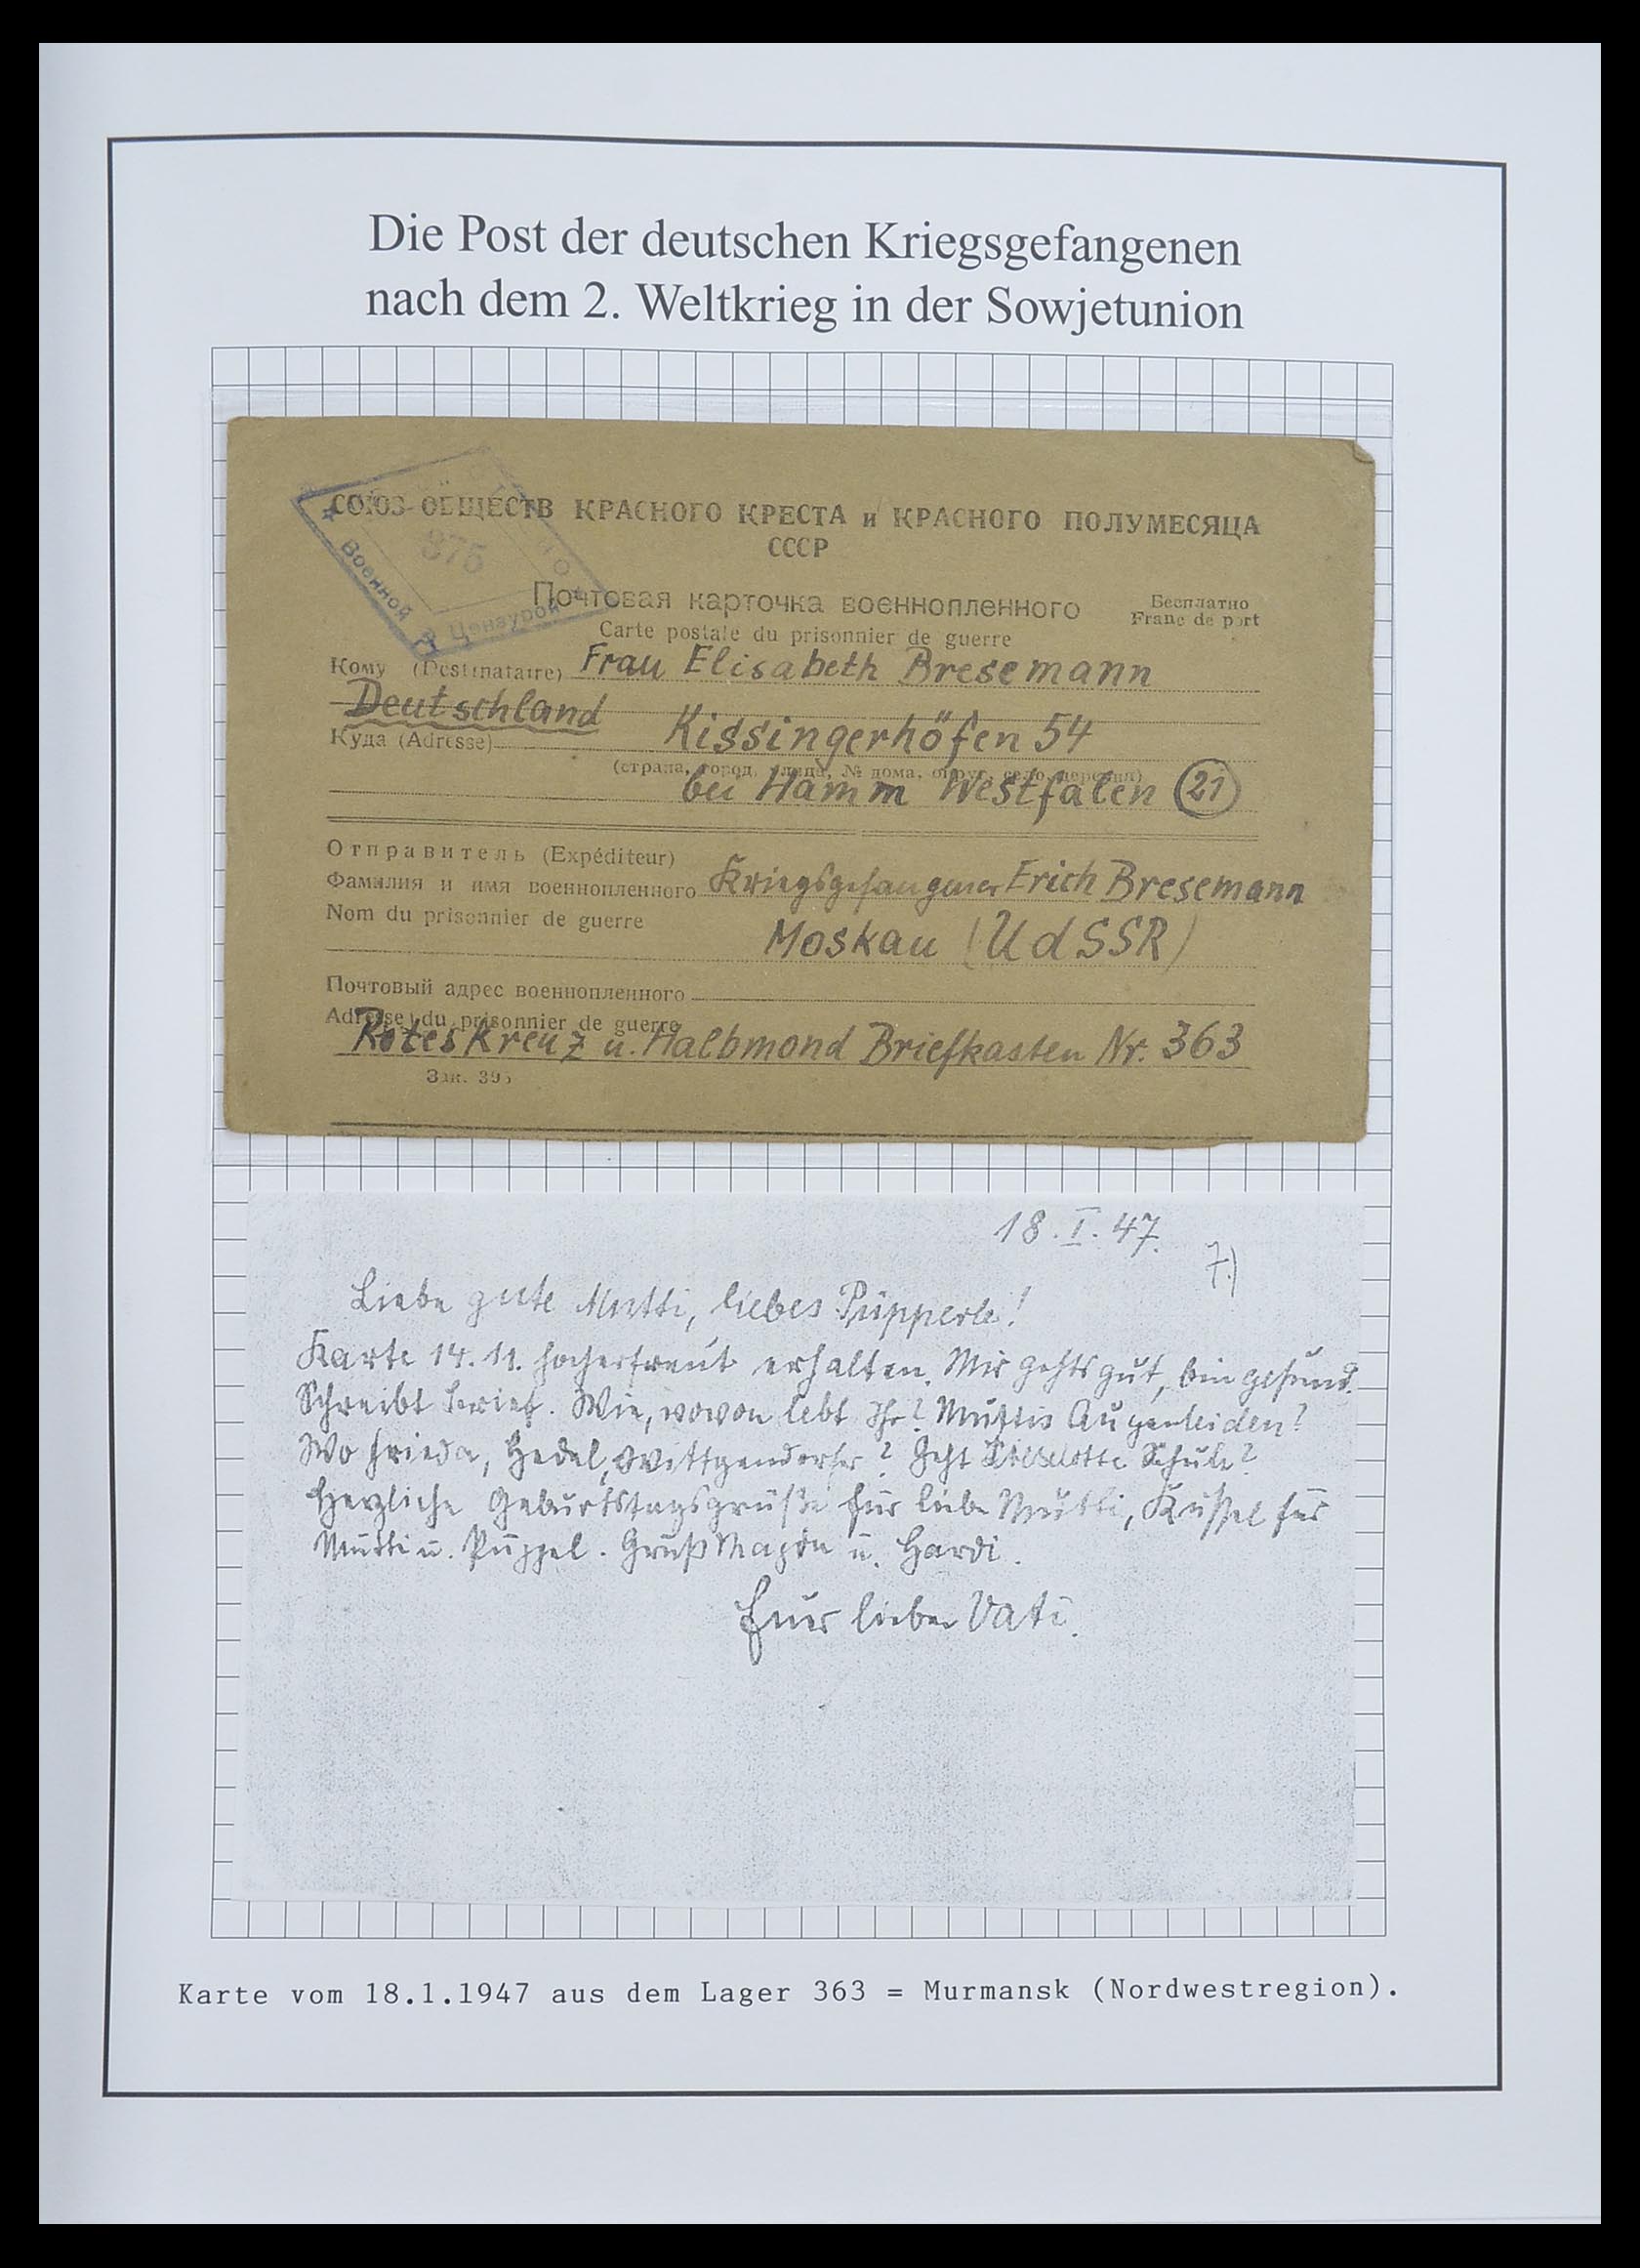 Die Post der deutschen Kriegsgefangenen
nach dem 2. Weltkrieg in der Sowjetunion
СОЮЗ ОБЩЕСТВ КРАСНОГО КРЕСТА и КРАСНОГО ПОЛУМЕСЯЦА
СССР
875
Военной Цензурой
Почтовая карточка военнопленного
Бесплатно
Carte postale du prisonnier de guerre
Franc de port
Кому (Destinataire) Frau Elisabeth Bresemann
Deutschland
Куда (Adresse) Kissingerhöfen 54
(страна, город, улица, № дома, округ, село, деревня)
bei Hamm Westfalen 21
Отправитель (Expéditeur)
Фамилия и имя военнопленного Kriegsgefangener Erich Bresemann
Nom du prisonnier de guerre
Moskau (UdSSR)
Почтовый адрес военнопленного
Adresse du prisonnier de guerre
Rotes Kreuz u. Halbmond Briefkasten Nr. 363
Зак. 395
18. I. 47.
7.)
Liebe gute Mutti, liebes Püpperle!
Karte 14. 11. hocherfreut erhalten. Mir gehts gut, bin gesund.
Schreibt Brief. Wie, wovon lebt Ihr? Muttis Augenleiden?
Wo Frieda, Hedel, Wittgendorfer? Geht Liselotte Schule?
Herzliche Geburtstagsgrüße für liebe Mutti, Küssel für
Mutti u. Püppel. Gruß Magda u. Hardi.
Euer lieber Vati.
Karte vom 18.1.1947 aus dem Lager 363 = Murmansk (Nordwestregion).